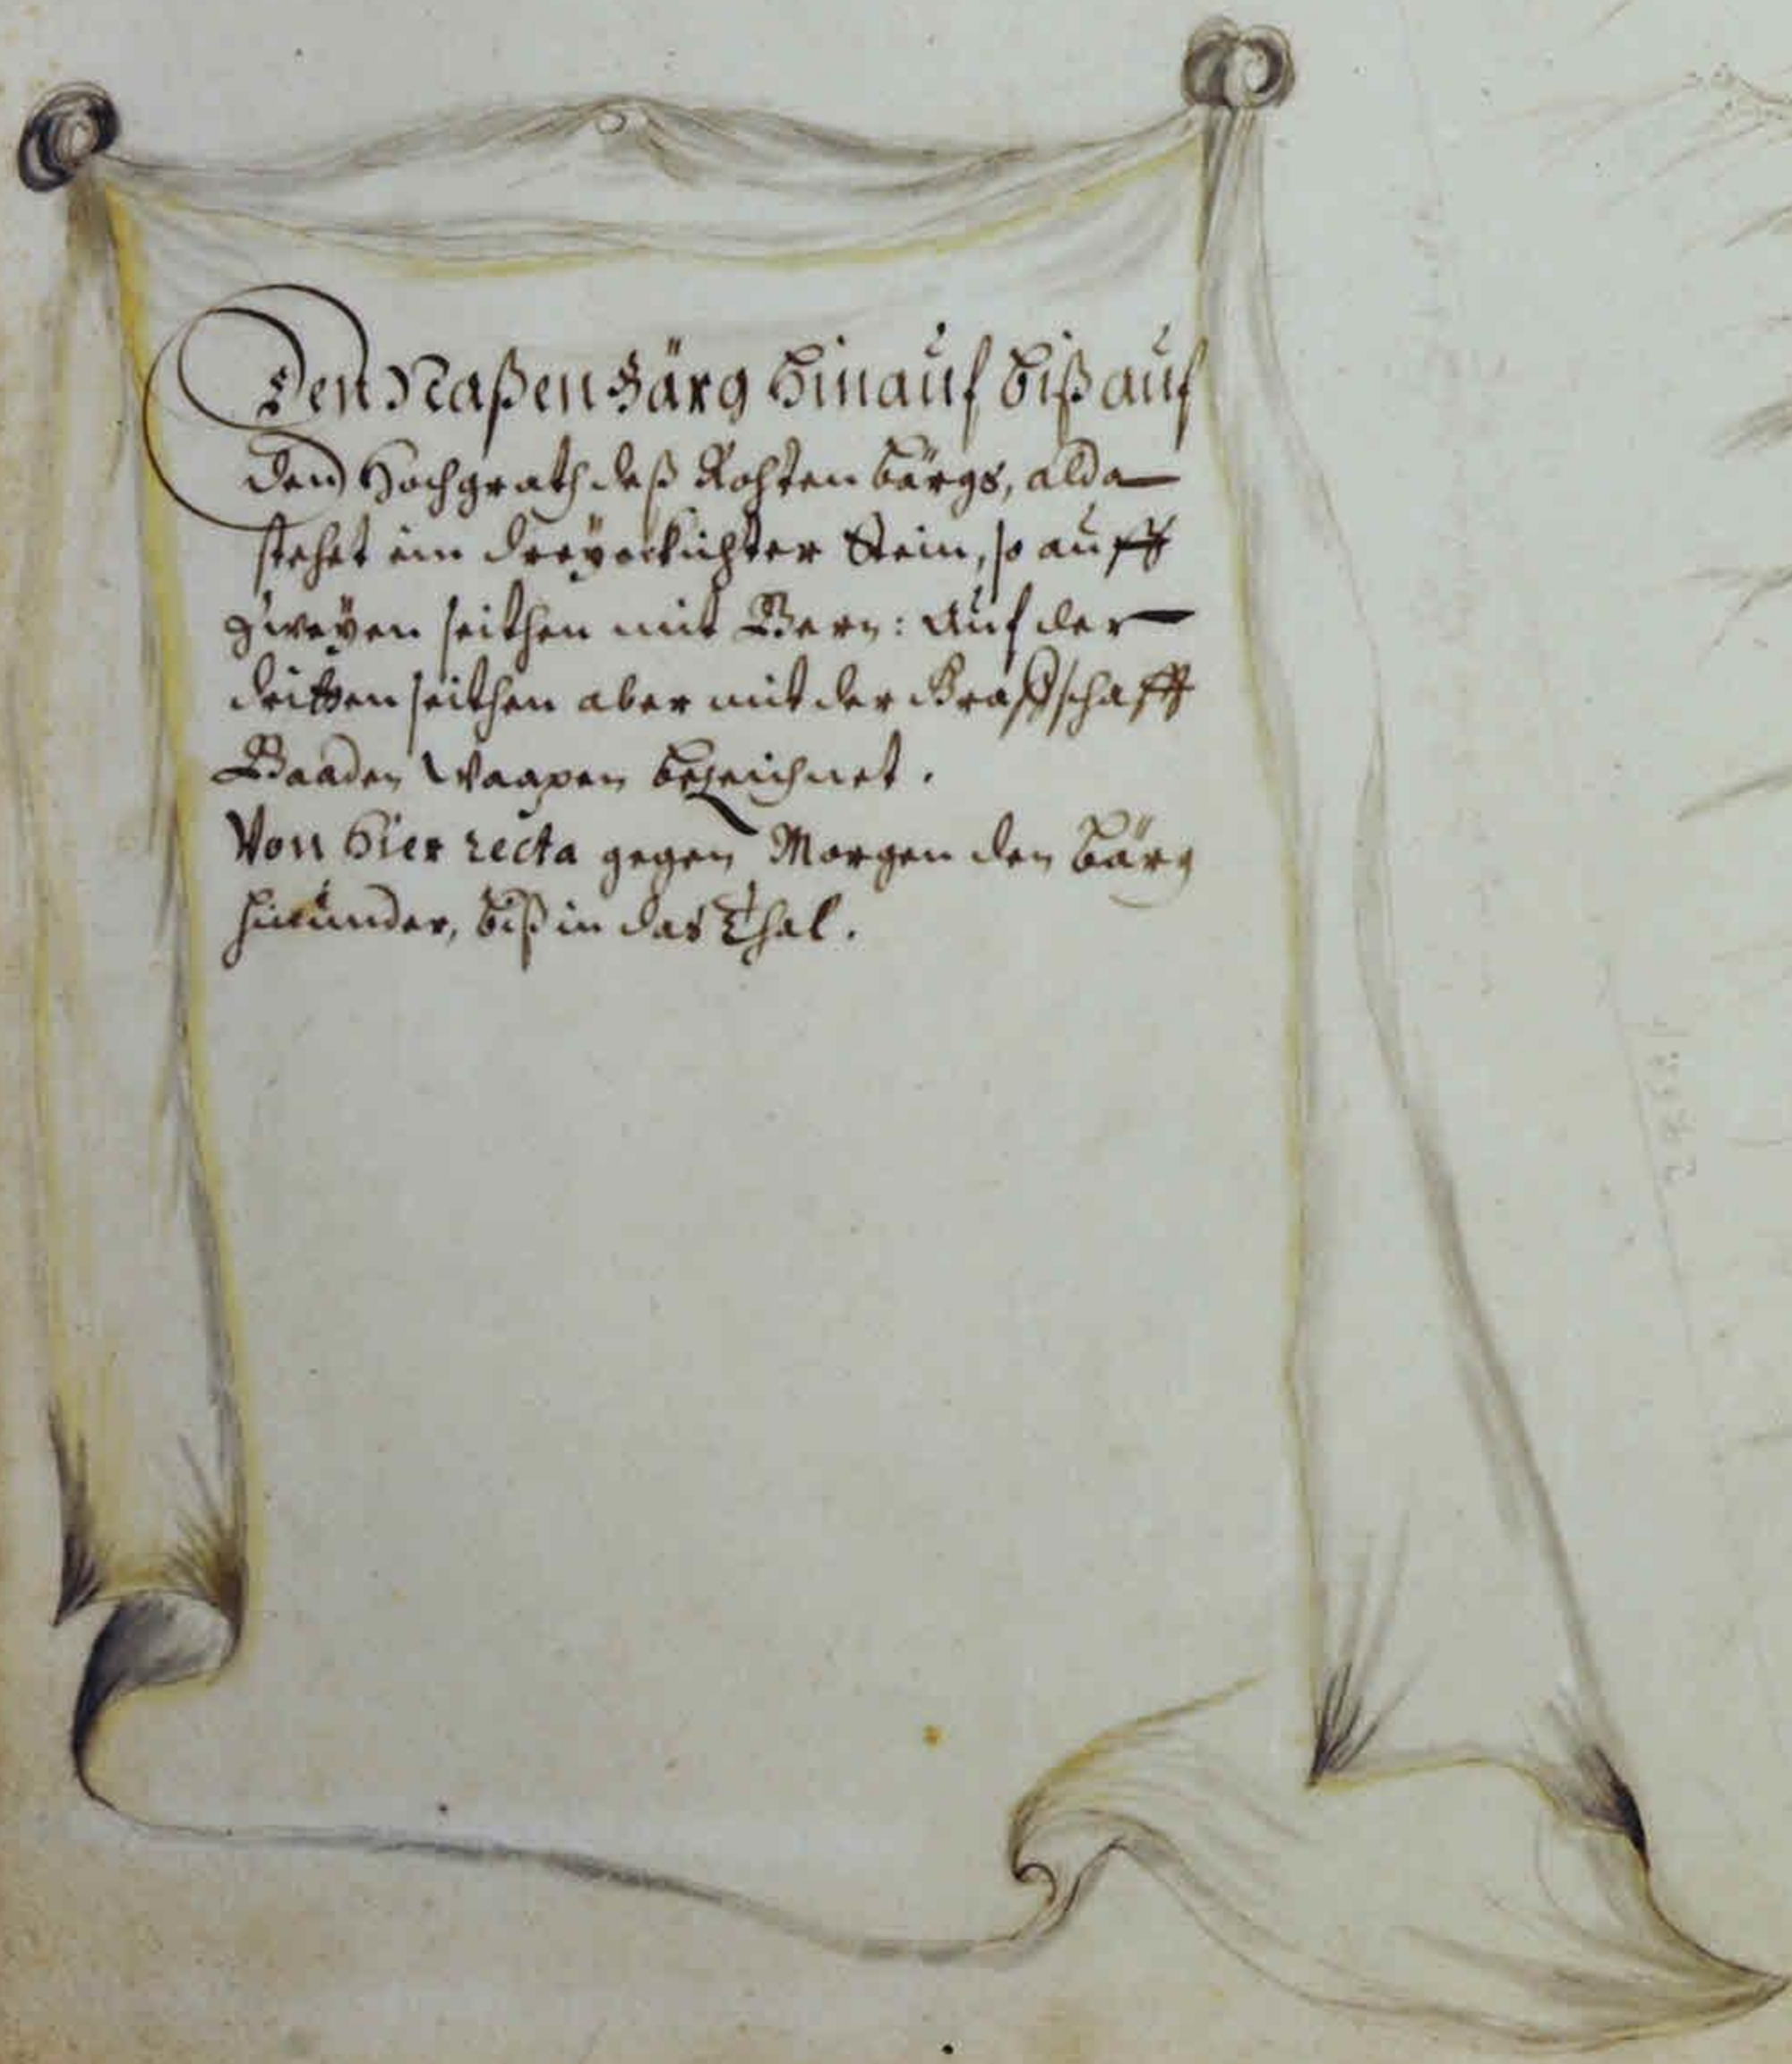 Den Naßen Bärg hinauf biß auf
den Hochgrath deß Rohten bärgs, alda
stehet ein dreÿeckichter Stein, so auff
zweÿen seithen mit Bern: Auf der
dritten seithen aber mit der Graffschafft
Baaden Waapen bezeichnet.
Von hier recta gegen Morgen den bärg
hinunder, biß in das Thal.